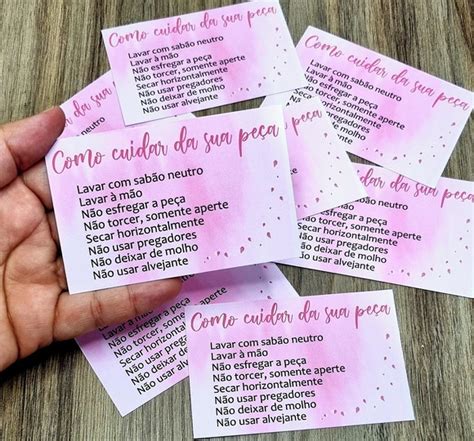 Como cuidar da sua peça
Lavar com sabão neutro
Lavar à mão
Não esfregar a peça
Não torcer, somente aperte
Secar horizontalmente
Não usar pregadores
Não deixar de molho
Não usar alvejante
Como cuidar da sua peça
Lavar com sabão neutro
Lavar à mão
Não esfregar a peça
Não torcer, somente aperte
Secar horizontalmente
Não usar pregadores
Não deixar de molho
Não usar alvejante
da sua peça
Como cuidar da sua peça
Lavar com sabão neutro
Lavar à mão
Não esfregar a peça
Não torcer, somente aperte
Secar horizontalmente
Não usar pregadores
Não deixar de molho
Não usar alvejante
sua peça
neutro
somente aperte
Secar horizontalmente
Não usar pregadores
Não deixar de molho
Não usar alvejante
Como cuidar da sua peça
Lavar com sabão neutro
Lavar à mão
Não esfregar a peça
Não torcer, somente aperte
Secar horizontalmente
Não usar pregadores
Não deixar de molho
Não usar alvejante
Lavar à
Não esfregar a
Não torcer,
Secar horizontal
Não usar
Não deixar
Não usar